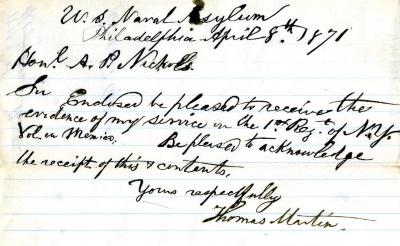 U. S. Naval Asylum
Philadelphia April 8.th 1871
Hon.l A. P. Nicholls.
Sir Enclosed be pleased to receive the
evidence of my service in the 1.st Reg.t of N. Y.
Vol. in Mexico. Be pleased to acknowledge
the receipt of this & contents.
Yours respectfully
Thomas Martin.